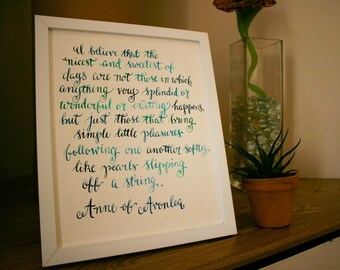 "I believe that the
nicest and sweetest of
days are not those in which
anything very splendid or
wonderful or exciting happens,
but just those that bring
simple little pleasures
following one another softly
like pearls slipping
off a string.
Anne of Avonlea